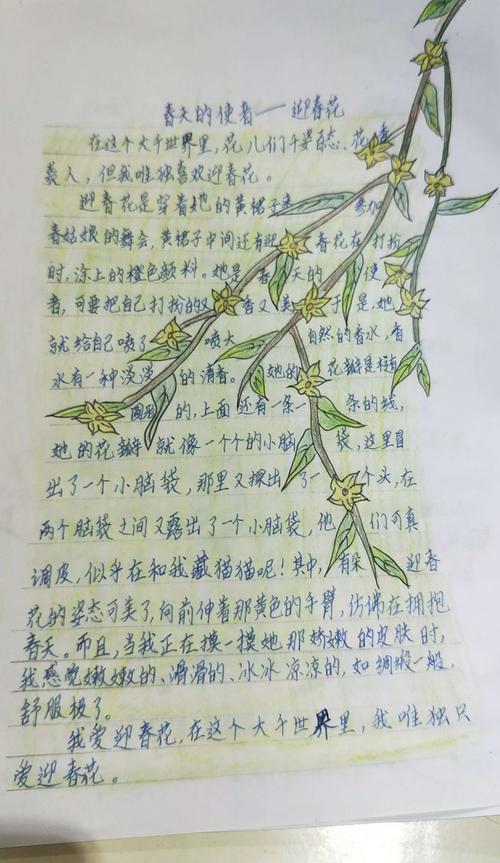 春天的使者——迎春花
在这个大千世界里，花儿们千姿百态、花香
袭人，但我唯独喜欢迎春花。
迎春花是穿着她的黄裙子来参加
春姑娘的舞会，黄裙子中间还有迎春花在打扮
时，涂上的橙色颜料。她是春天的使
者，可要把自己打扮的又香又美于是，她
就给自己喷了喷大自然的香水，香
水有一种淡淡的清香。她的花瓣是椭
圆形的，上面还有一条一条的线，
她的花瓣就像一个个的小脑袋，这里冒
出了一个小脑袋，那里又探出了一个头，在
两个脑袋之间又露出了一个小脑袋，他们可真
调皮，似乎在和我藏猫猫呢！其中，有朵迎春
花的姿态可美了，向前伸着那黄色的手臂，仿佛在拥抱
春天。而且，当我正在摸一摸她那娇嫩的皮肤时，
我感觉嫩嫩的、滑滑的、冰冰凉凉的，如绸缎一般，
舒服极了。
我爱迎春花，在这个大千世界里，我唯独只
爱迎春花。